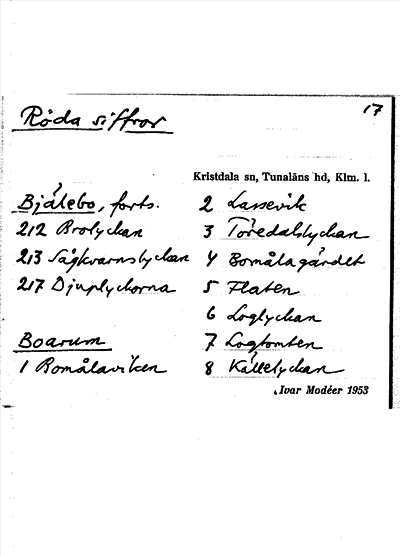 Röda siffror
17
Kristdala sn, Tunaläns hd, Klm. l.
Bjälebo, forts.
212 Brolyckan
213 Sågkvarnslyckan
217 Djuplyckorna
Boarum
1 Bomålaviken
2 Lassevik
3 Toredalslyckan
4 Bomålagärdet
5 Flaten
6 Loglyckan
7 Logtomten
8 Källelyckan
Ivar Modéer 1953